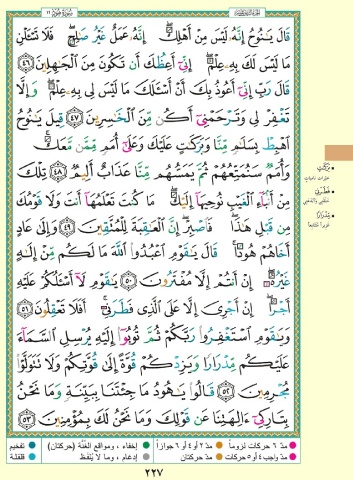 الجزء الثاني عشر
سورة هود ١١
قَالَ يَـٰنُوحُ إِنَّهُۥ لَيْسَ مِنْ أَهْلِكَ ۖ إِنَّهُۥ عَمَلٌ غَيْرُ صَـٰلِحٍ ۖ فَلَا تَسْـَٔلْنِ
مَا لَيْسَ لَكَ بِهِۦ عِلْمٌ ۖ إِنِّىٓ أَعِظُكَ أَن تَكُونَ مِنَ ٱلْجَـٰهِلِينَ ٤٦
قَالَ رَبِّ إِنِّىٓ أَعُوذُ بِكَ أَنْ أَسْـَٔلَكَ مَا لَيْسَ لِى بِهِۦ عِلْمٌ ۖ وَإِلَّا
تَغْفِرْ لِى وَتَرْحَمْنِىٓ أَكُن مِّنَ ٱلْخَـٰسِرِينَ ٤٧ قِيلَ يَـٰنُوحُ
ٱهْبِطْ بِسَلَـٰمٍ مِّنَّا وَبَرَكَـٰتٍ عَلَيْكَ وَعَلَىٰٓ أُمَمٍ مِّمَّن مَّعَكَ ۚ
وَأُمَمٌ سَنُمَتِّعُهُمْ ثُمَّ يَمَسُّهُم مِّنَّا عَذَابٌ أَلِيمٌ ٤٨ تِلْكَ
مِنْ أَنۢبَآءِ ٱلْغَيْبِ نُوحِيهَآ إِلَيْكَ ۖ مَا كُنتَ تَعْلَمُهَآ أَنتَ وَلَا قَوْمُكَ
مِن قَبْلِ هَـٰذَا ۖ فَٱصْبِرْ ۖ إِنَّ ٱلْعَـٰقِبَةَ لِلْمُتَّقِينَ ٤٩ وَإِلَىٰ عَادٍ
أَخَاهُمْ هُودًا ۚ قَالَ يَـٰقَوْمِ ٱعْبُدُوا۟ ٱللَّهَ مَا لَكُم مِّنْ إِلَـٰهٍ
غَيْرُهُۥٓ ۖ إِنْ أَنتُمْ إِلَّا مُفْتَرُونَ ٥٠ يَـٰقَوْمِ لَآ أَسْـَٔلُكُمْ عَلَيْهِ
أَجْرًا ۖ إِنْ أَجْرِىَ إِلَّا عَلَى ٱلَّذِى فَطَرَنِىٓ ۚ أَفَلَا تَعْقِلُونَ ٥١
وَيَـٰقَوْمِ ٱسْتَغْفِرُوا۟ رَبَّكُمْ ثُمَّ تُوبُوٓا۟ إِلَيْهِ يُرْسِلِ ٱلسَّمَآءَ
عَلَيْكُم مِّدْرَارًا وَيَزِدْكُمْ قُوَّةً إِلَىٰ قُوَّتِكُمْ وَلَا تَتَوَلَّوْا۟
مُجْرِمِينَ ٥٢ قَالُوا۟ يَـٰهُودُ مَا جِئْتَنَا بِبَيِّنَةٍ وَمَا نَحْنُ
بِتَارِكِىٓ ءَالِهَتِنَا عَن قَوْلِكَ وَمَا نَحْنُ لَكَ بِمُؤْمِنِينَ ٥٣
بَرَكَـٰتٍ
فَطَرَنِى
مِدْرَارًا
مدّ ٦ حركات لزوماً
مدّ ٢ أو ٤ أو ٦ جوازاً
إخفاء، ومواقع الغُنَّة (حركتان)
تفخيم
مدّ واجب ٤ أو ٥ حركات
مدّ حركتان
إدغام، وما لا يُلفَظ
قلقلة
٢٢٧